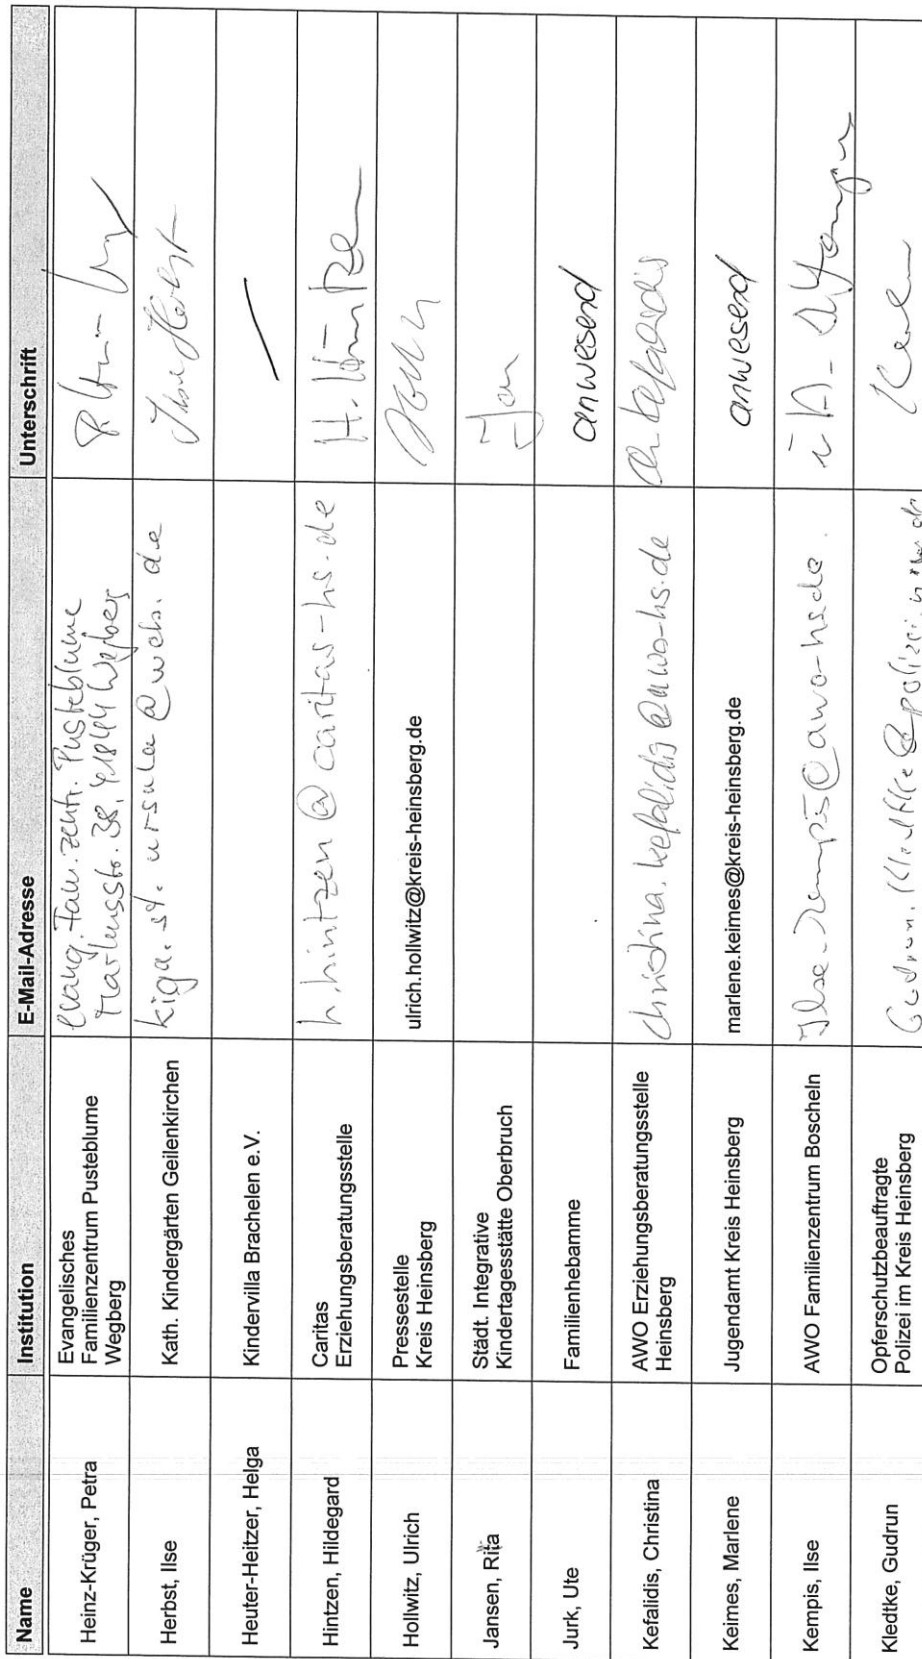 Name Institution E-Mail-Adresse Unterschrift
Heinz-Krüger, Petra
Evangelisches
Familienzentrum Pusteblume
Wegberg
Evang. Fam. zentr. Pusteblume
Martinusstr. 38, 41844 Wegberg
Herbst, Ilse
Kath. Kindergärten Geilenkirchen
kiga.st.ursula@web.de
Ilse Herbst
Heuter-Heitzer, Helga
Kindervilla Brachelen e.V.
Hintzen, Hildegard
Caritas
Erziehungsberatungsstelle
h.hintzen@caritas-hs.de
H. Hintzen
Hollwitz, Ulrich
Pressestelle
Kreis Heinsberg
ulrich.hollwitz@kreis-heinsberg.de
Jansen, Rita
Städt. Integrative
Kindertagesstätte Oberbruch
Jurk, Ute
Familienhebamme
anwesend
Kefalidis, Christina
AWO Erziehungsberatungsstelle
Heinsberg
christina.kefalidis@awo-hs.de
Ch. Kefalidis
Keimes, Marlene
Jugendamt Kreis Heinsberg
marlene.keimes@kreis-heinsberg.de
anwesend
Kempis, Ilse
AWO Familienzentrum Boscheln
i.A.
Kledtke, Gudrun
Opferschutzbeauftragte
Polizei im Kreis Heinsberg